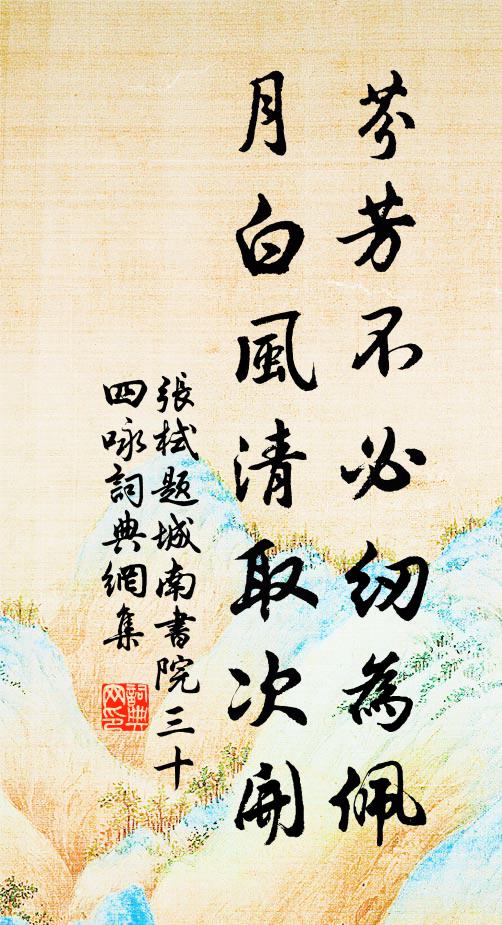 芬芳不必紉為佩
月白風清取次開
張栻題城南書院三十
四咏詞典網集
詞典
网印